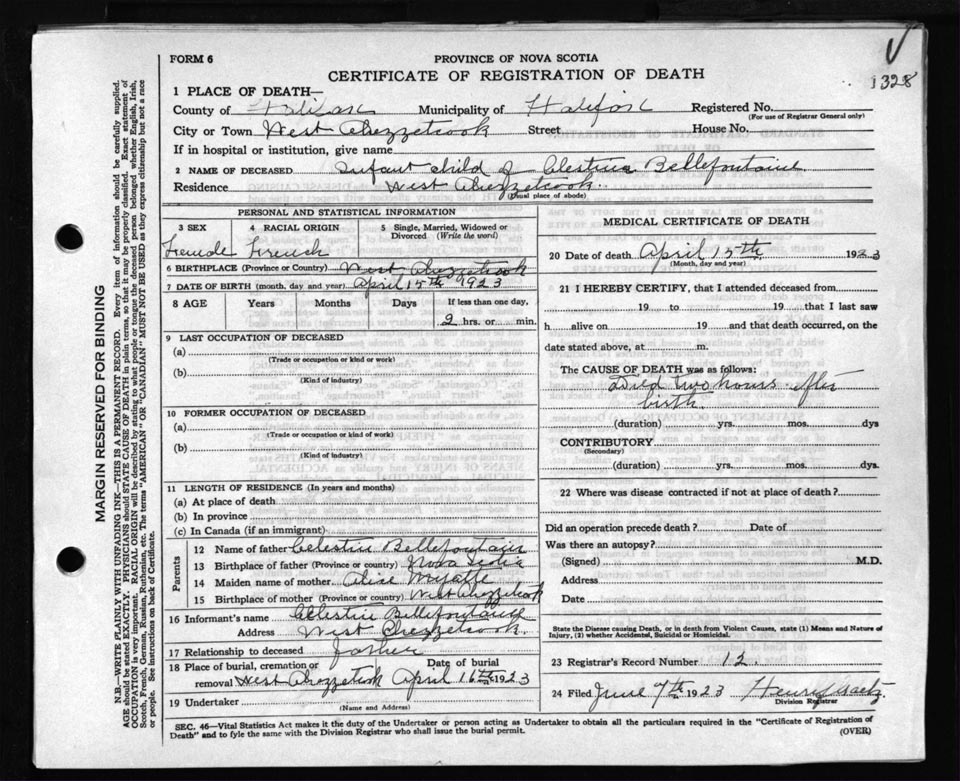 V
1328
FORM 6
PROVINCE OF NOVA SCOTIA
CERTIFICATE OF REGISTRATION OF DEATH
1 PLACE OF DEATH—
County of Halifax Municipality of Halifax Registered No.
(For use of Registrar General only)
City or Town West Chezzetcook Street House No.
If in hospital or institution, give name
2 NAME OF DECEASED Infant child of Celestin Bellefontaine
Residence West Chezzetcook.
(Usual place of abode)
PERSONAL AND STATISTICAL INFORMATION
3 SEX 4 RACIAL ORIGIN 5 Single, Married, Widowed or Divorced (Write the word)
Female French
6 BIRTHPLACE (Province or Country) West Chezzetcook
7 DATE OF BIRTH (month, day and year) April 15th 1923
8 AGE Years Months Days If less than one day,
2 hrs. or min.
9 LAST OCCUPATION OF DECEASED
(a)
(Trade or occupation or kind or work)
(b)
(Kind of industry)
10 FORMER OCCUPATION OF DECEASED
(a)
(Trade or occupation or kind of work)
(b)
(Kind of industry)
11 LENGTH OF RESIDENCE (In years and months)
(a) At place of death
(b) In province
(c) In Canada (if an immigrant)
Parents
12 Name of father Celestin Bellefontaine
13 Birthplace of father (Province or country) Nova Scotia
14 Maiden name of mother Alice Myatte
15 Birthplace of mother (Province or country) West Chezzetcook
16 Informant's name Celestin Bellefontaine
Address West Chezzetcook.
17 Relationship to deceased father
18 Place of burial, cremation or removal West Chezzetcook Date of burial April 16th 1923
19 Undertaker
(Name and Address)
MEDICAL CERTIFICATE OF DEATH
20 Date of death April 15th 1923
(Month, day and year)
21 I HEREBY CERTIFY, that I attended deceased from
19 to 19 that I last saw
h alive on 19 and that death occurred, on the
date stated above, at m.
The CAUSE OF DEATH was as follows:
Died two hours after
birth.
(duration) yrs. mos. dys
CONTRIBUTORY
(Secondary)
(duration) yrs. mos. dys.
22 Where was disease contracted if not at place of death?
Did an operation precede death? Date of
Was there an autopsy?
(Signed) M.D.
Address
Date
State the Disease causing Death, or in death from Violent Causes, state (1) Means and Nature of
Injury, (2) whether Accidental, Suicidal or Homicidal.
23 Registrar's Record Number 12.
24 Filed June 7th 1923 Henry Gaetz
Division Registrar
SEC. 46—Vital Statistics Act makes it the duty of the Undertaker or person acting as Undertaker to obtain all the particulars required in the "Certificate of Registration of
Death" and to fyle the same with the Division Registrar who shall issue the burial permit.
(OVER)
MARGIN RESERVED FOR BINDING
N.B.—WRITE PLAINLY WITH UNFADING INK—THIS IS A PERMANENT RECORD. Every item of information should be carefully supplied.
AGE should be stated EXACTLY. PHYSICIANS should STATE CAUSE OF DEATH in plain terms, so that it may be properly classified. Exact statement of
OCCUPATION is very important. RACIAL ORIGIN will be described by stating to what people or tongue the deceased person belonged whether English, Irish,
Scotch, French, German, Russian, Ruthenian, etc. The terms "AMERICAN" or "CANADIAN" MUST NOT BE USED as they express citizenship but not a race
or people. See instructions on back of Certificate.